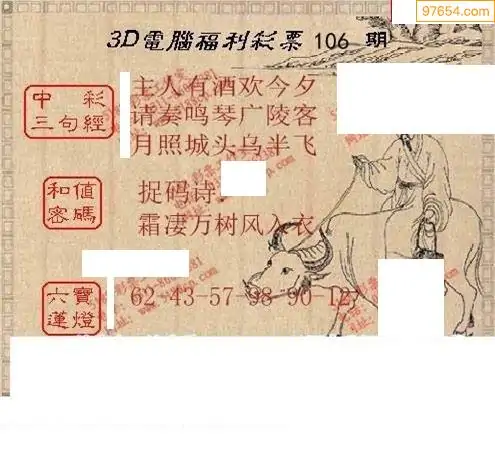 97654.com
3D電腦福利彩票106期
中彩
三句經
主人有酒欢今夕
请奏鸣琴广陵客
月照城头乌半飞
和值
密碼
捉码诗:
霜凄万树风入衣
六寶
蓮燈
62-43-57-98-90-12